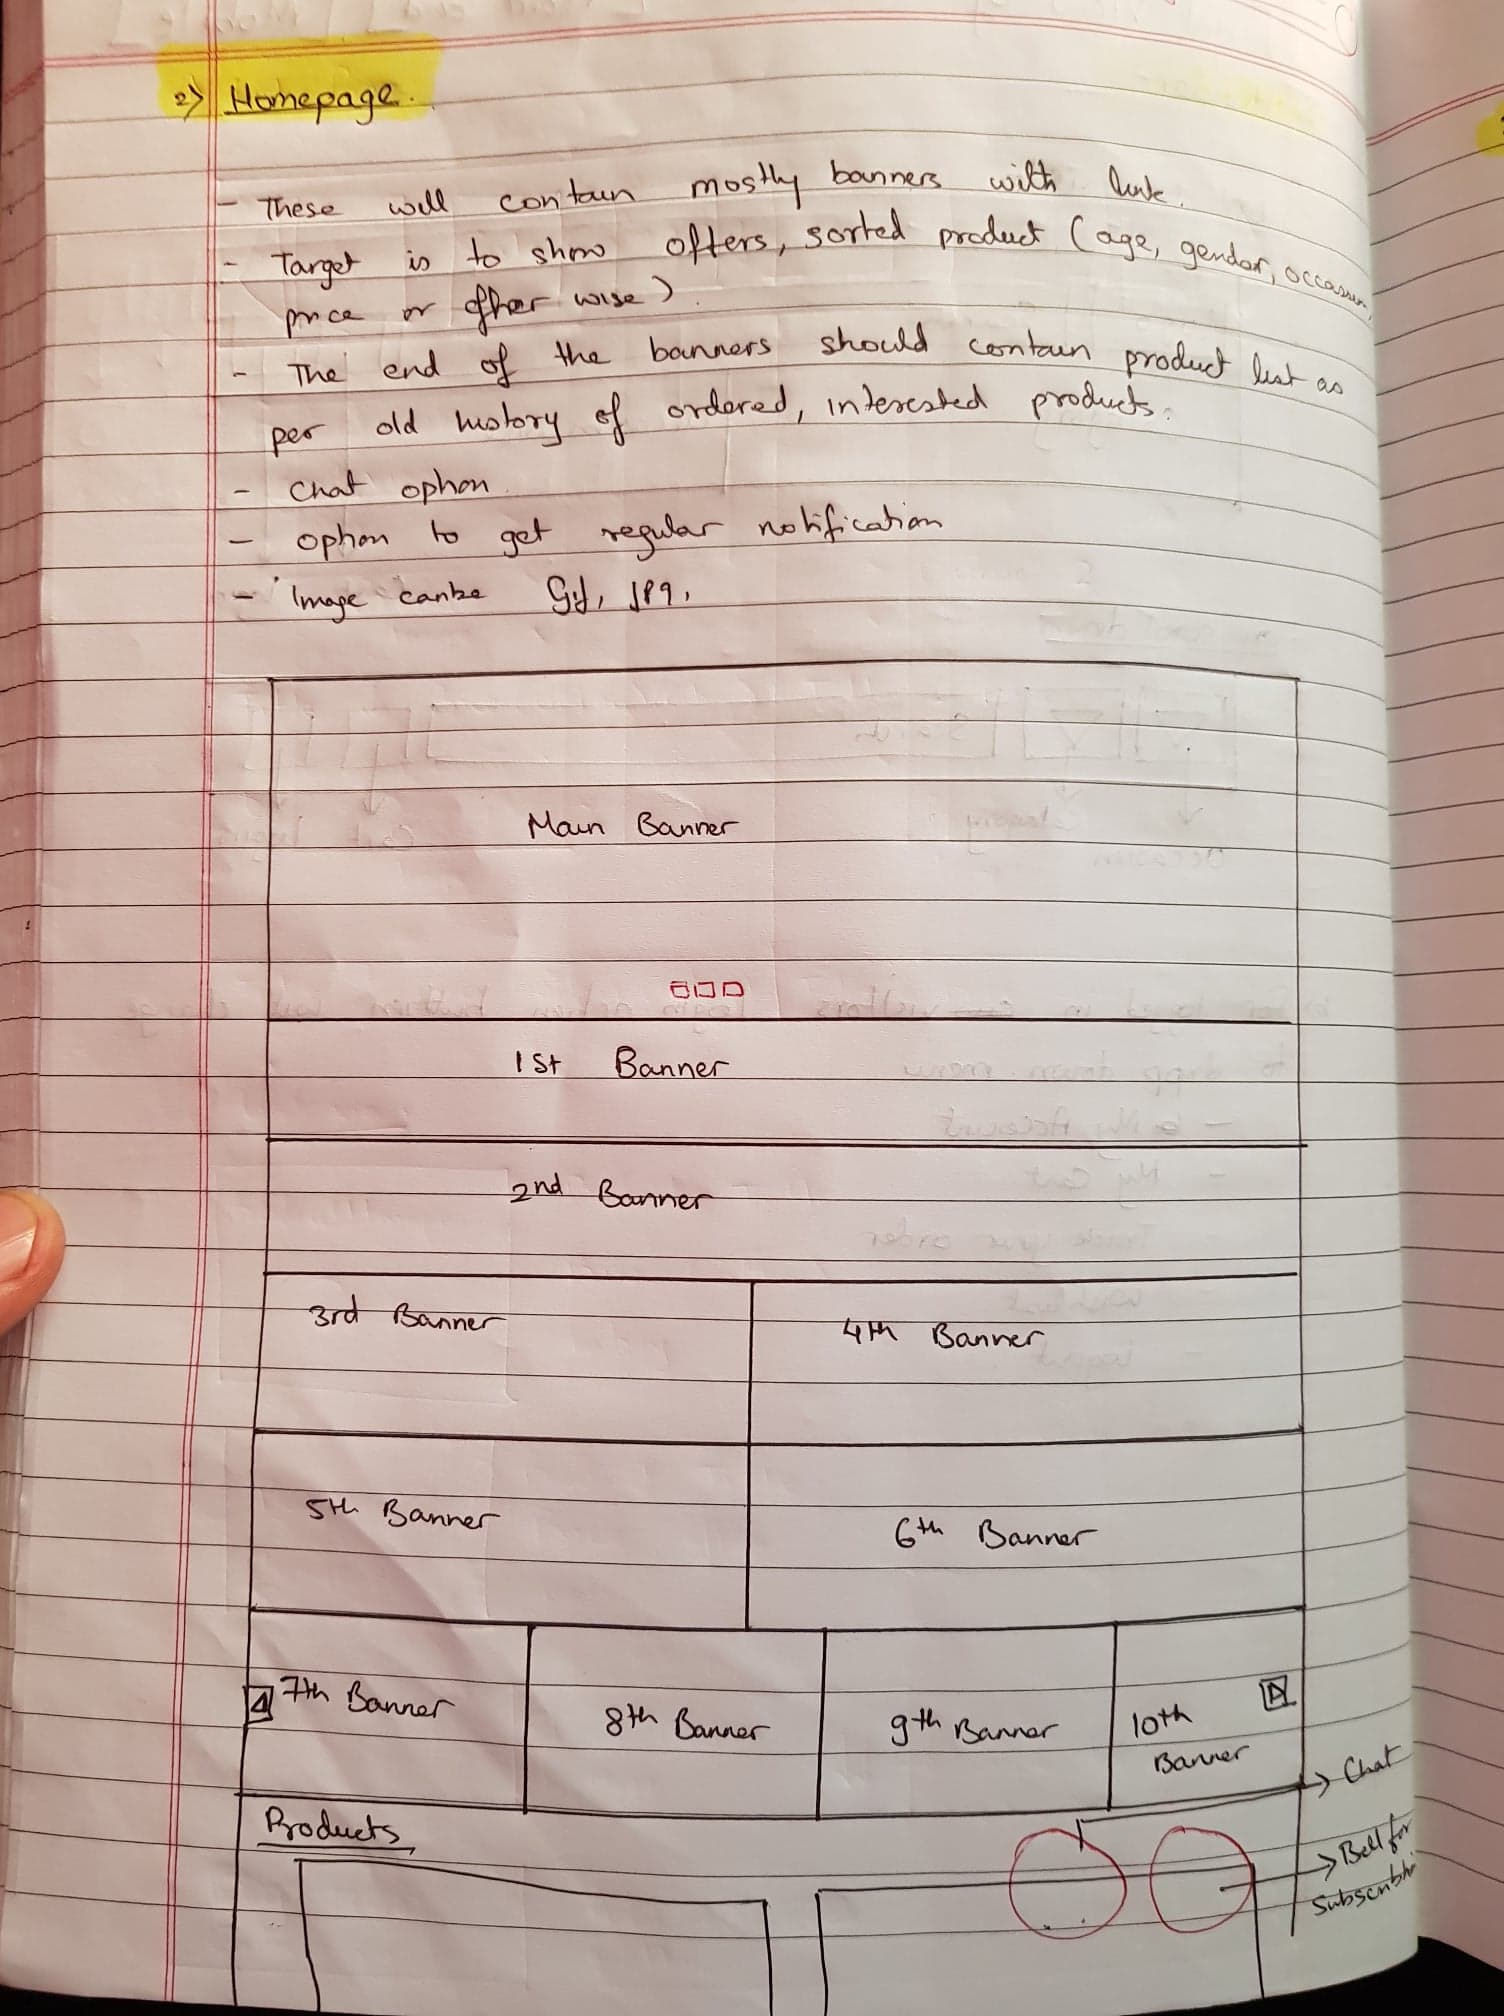 2) Homepage.
- These will contain mostly banners with link.
- Target is to show offers, sorted product (age, gender, occassion,
price or other wise).
- The end of the banners should contain product list as
per old history of ordered, interested products.
- Chat option
- option to get regular notification
- Image can be Gif, JPG,
Main Banner
1st Banner
2nd Banner
3rd Banner 4th Banner
5th Banner 6th Banner
7th Banner 8th Banner 9th Banner 10th
Banner
Chat
Products
Bell for